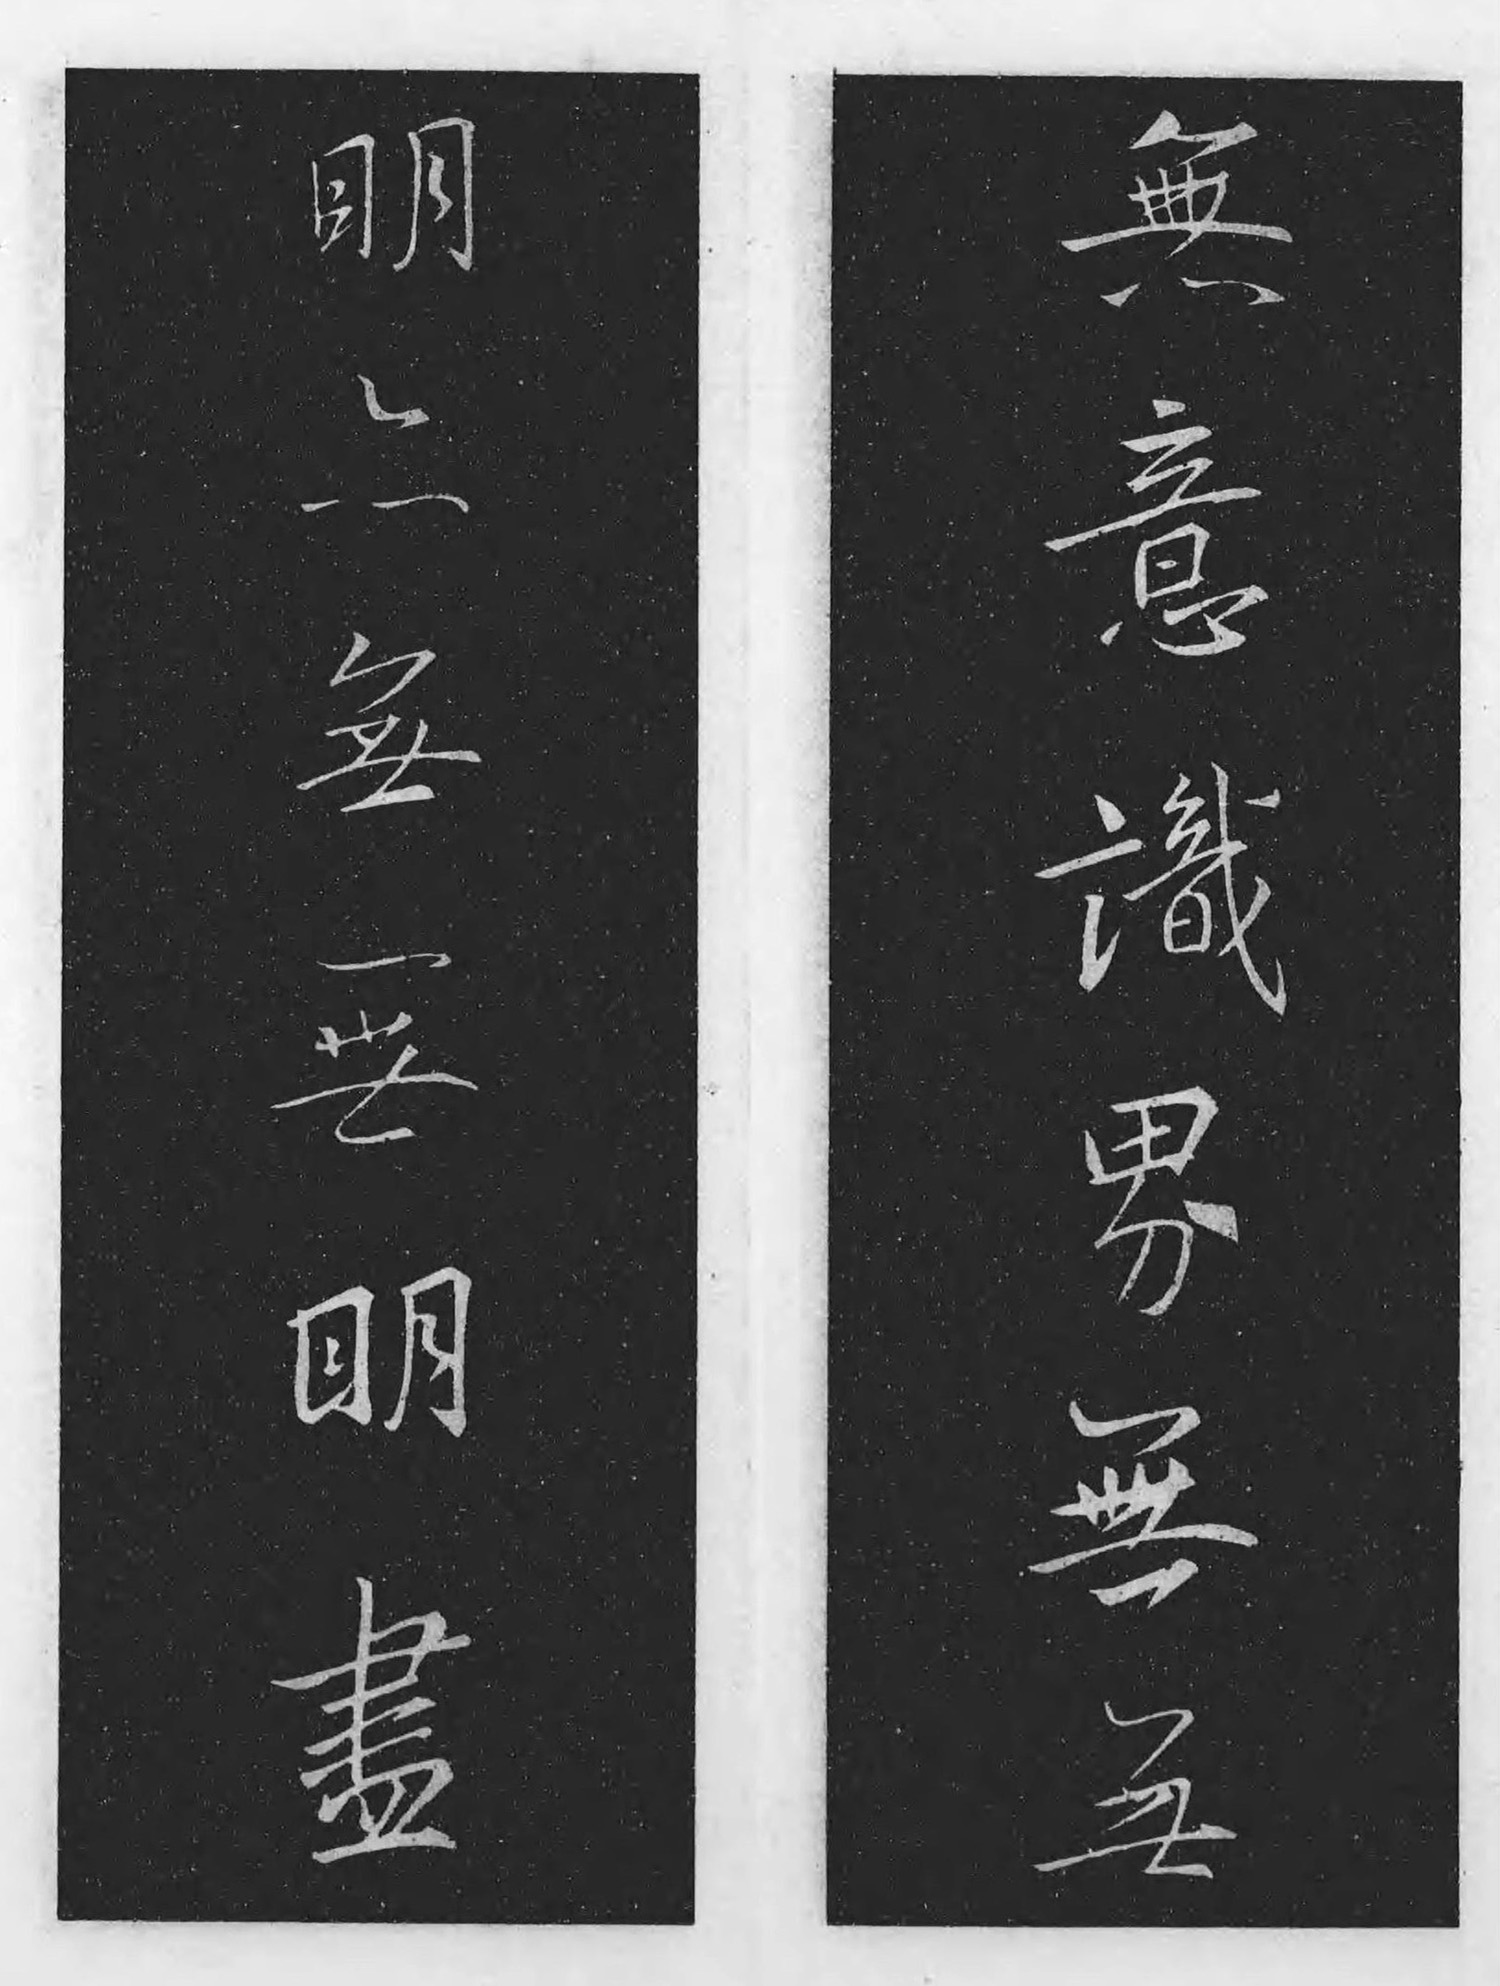 無意識界無無
明亦無無明盡